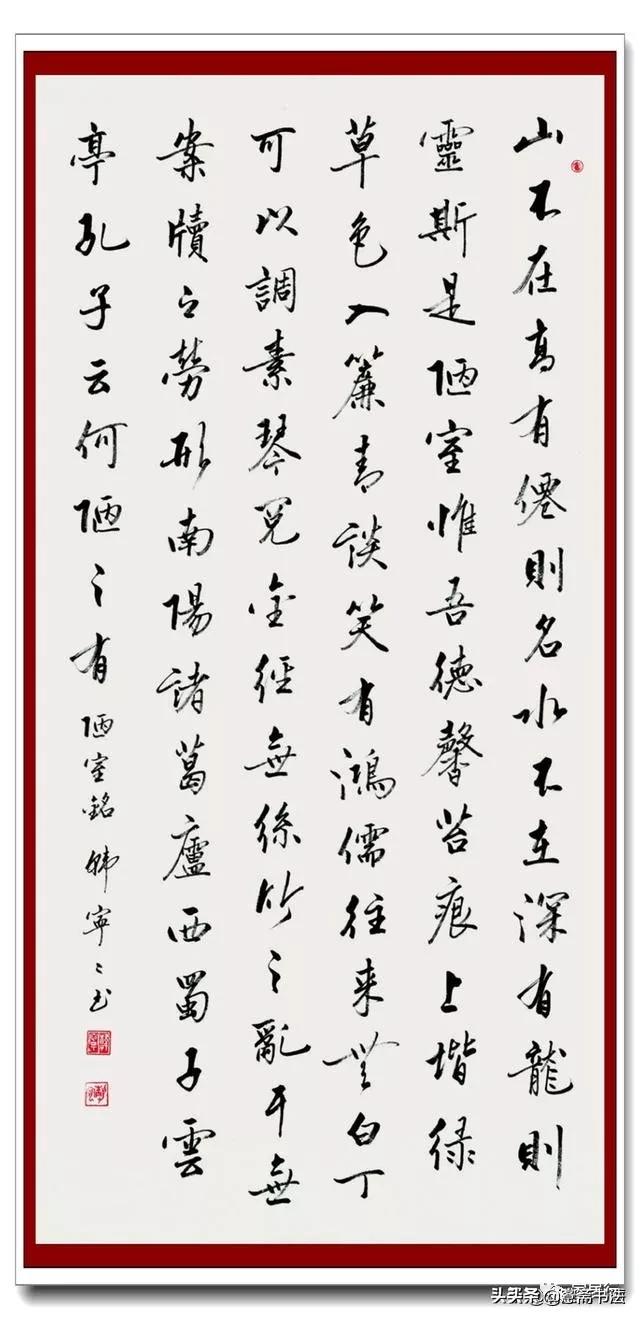 山不在高有僊則名水不在深有龍則
靈斯是陋室惟吾德馨苔痕上堦緑
草色入簾青談笑有鴻儒往來無白丁
可以調素琴閱金經無絲竹之亂耳無
案牘之勞形南陽諸葛廬西蜀子雲
亭孔子云何陋之有 陋室銘 韩寧々书
头条 斋书法